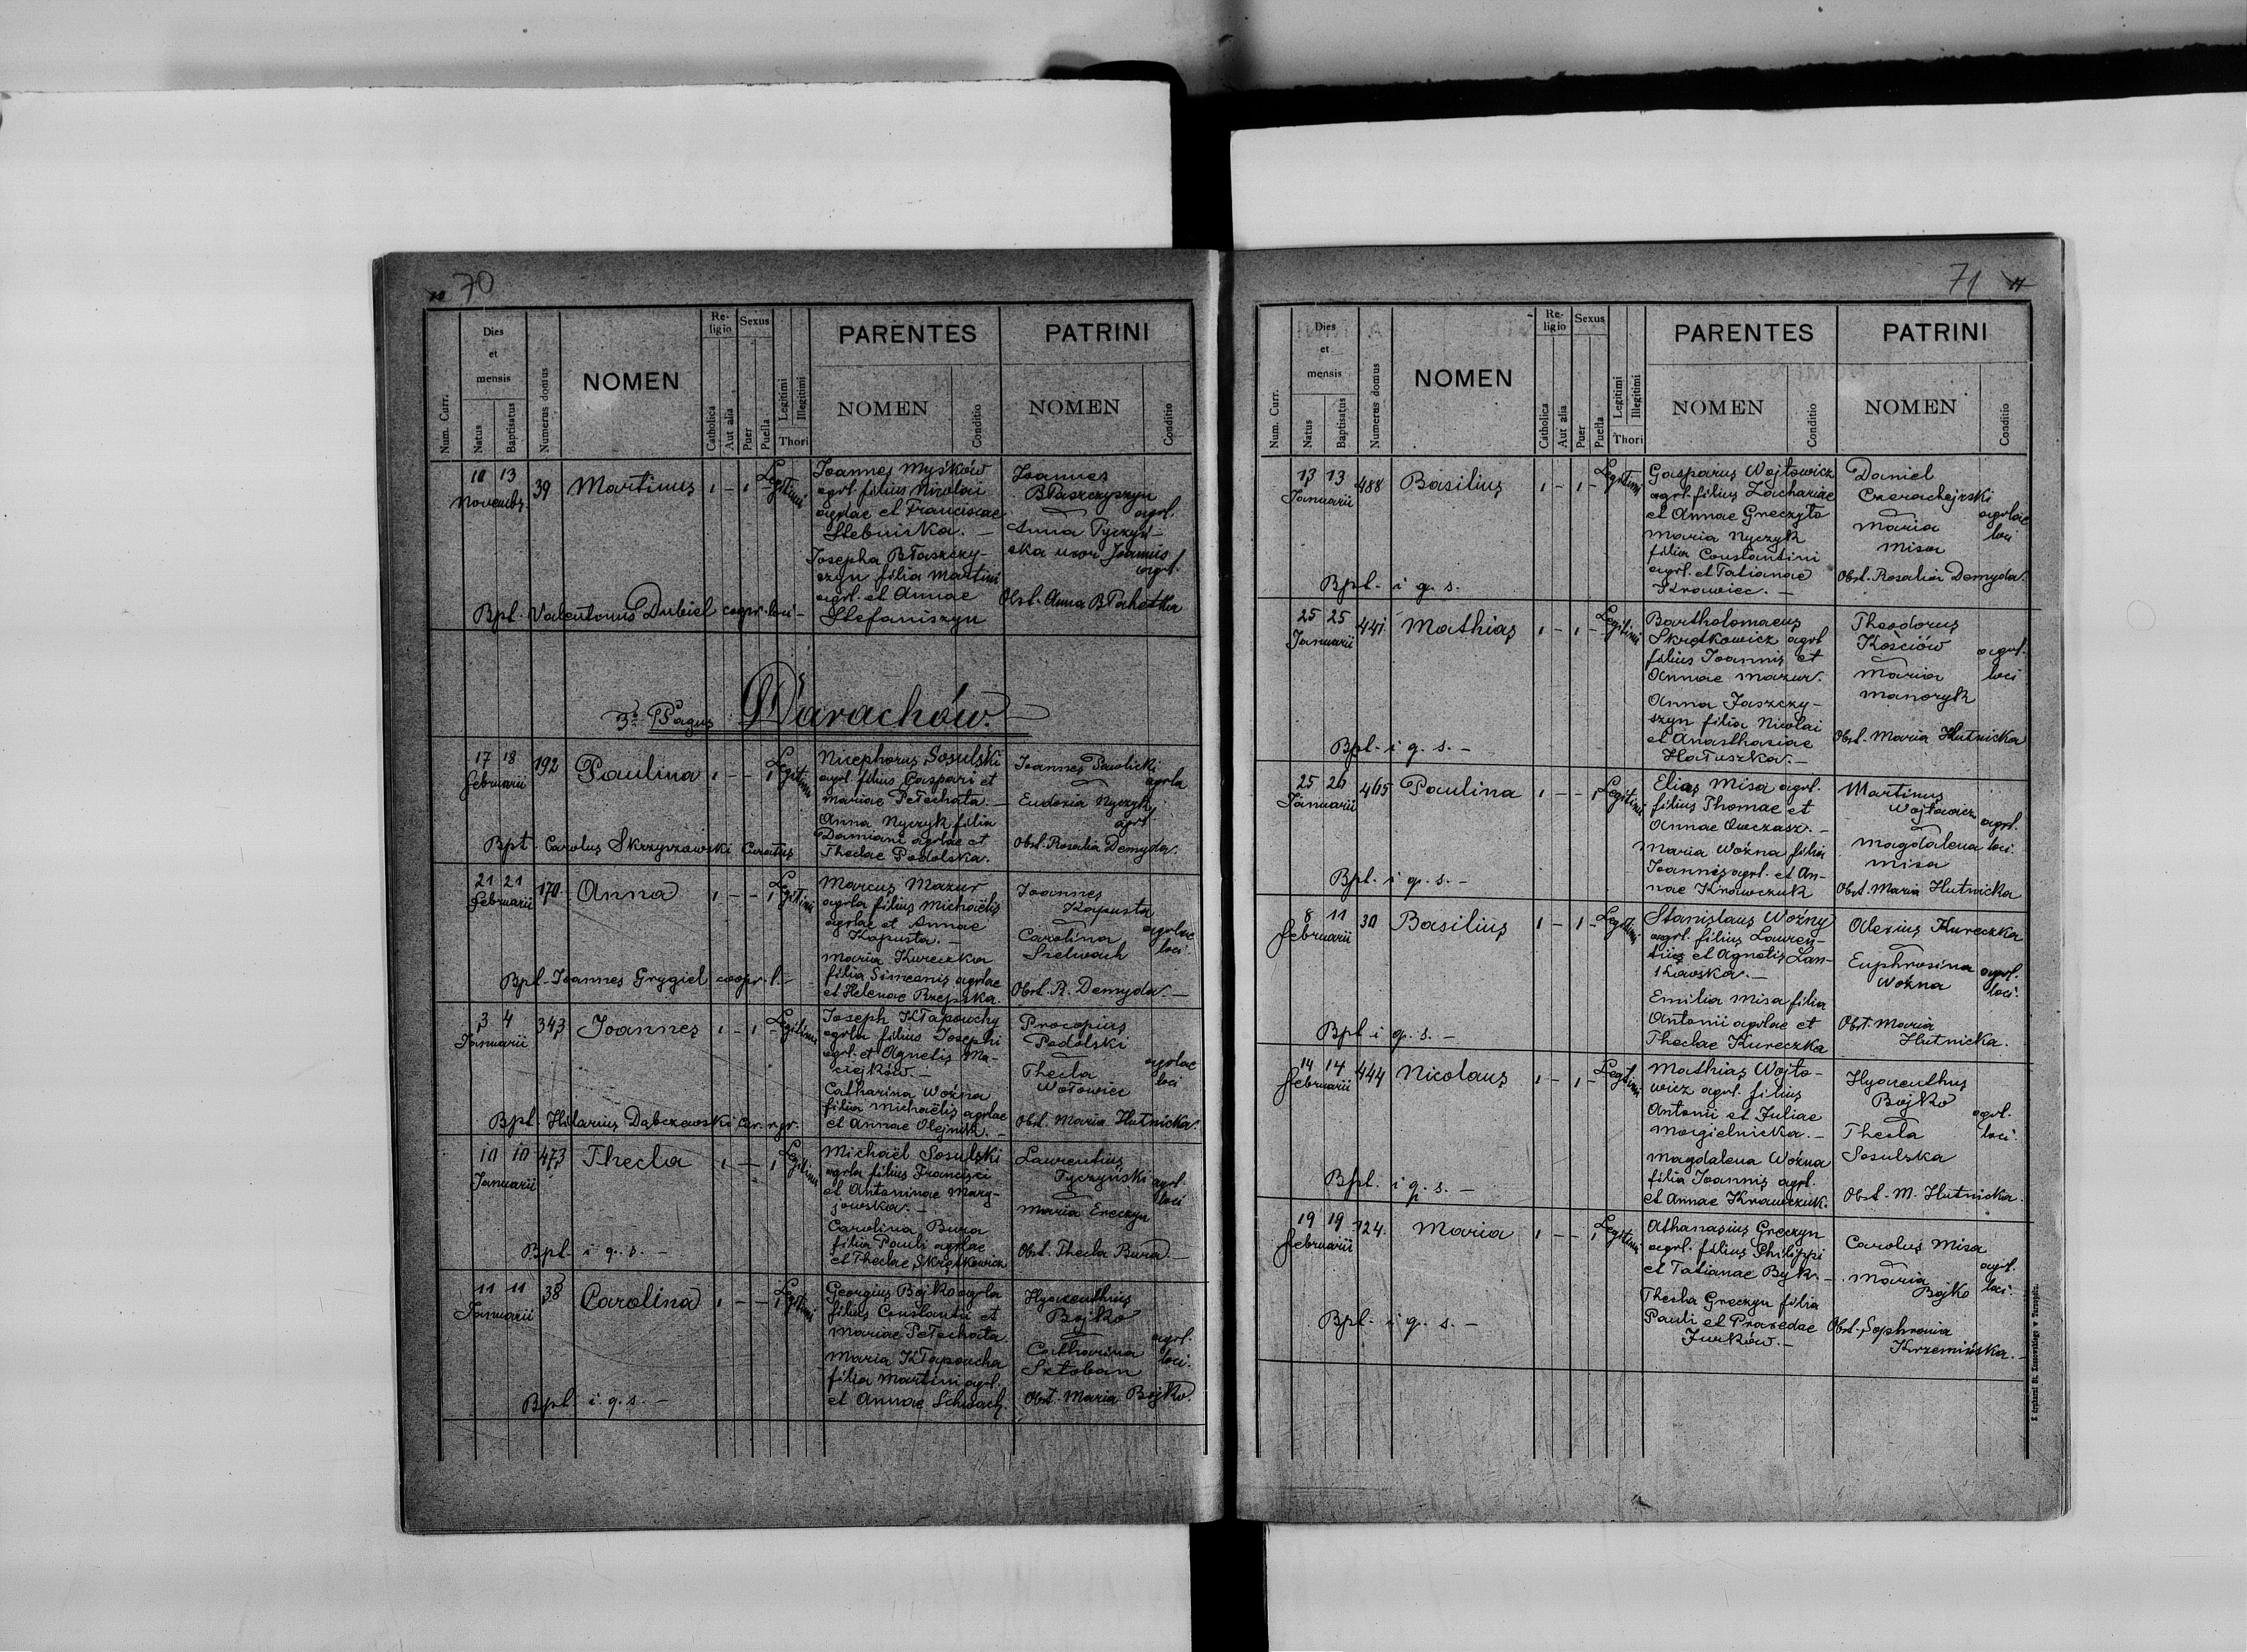 70
Num. Curr.
Dies et mensis
Natus
Baptisatus
Numerus domus
NOMEN
Religio
Catholica
Aut alia
Sexus
Puer
Puella
Legitimi
Illegitimi
Thori
PARENTES
NOMEN
Conditio
PATRINI
NOMEN
Conditio
10 13
Novembr.
39
Martinus
1 - 1 -
Legitimi
Joannes Myśków
agrl. filius Nicolai
agrlae et Franciscae
Stebnicka. -
Josepha Błaszczy-
szyn filia Martini
agrl. et Annae
Stefaniszyn
Joannes
Błaszczyszyn
agrl.
Anna Tyczyń-
ska uxor Joannis
agrl.
Obst. Anna
Bpt. Valentinus Dubiel coopr. loci -
3o Pagus Darachów. -
17 18
Februarii
192
Paulina
1 - - 1
Legitimi
Nicephorus Sosulski
agrl. filius Gaspari et
Mariae Pełechata. -
Anna Nyczyk filia
Damiani agrlae et
Theclae Podolska.
Joannes Pawlicki
agrla
Eudoxia Nyczyk
agrl
Obst. Rosalia Demyda.
Bpt. Carolus Skrzyszowski Curatus
21 21
Februarii
170.
Anna
1 - - 1
Legitimi
Marcus Mazur
agrla filius Michaëlis
agrlae et Annae
Kapusta. -
Maria Kureczka
filia Simeonis agrlae
et Helenae Rzepska.
Joannes
Kapusta
Carolina
Szelwach
agrlae
loci.
Obst. R. Demyda. -
Bpt. Joannes Grygiel coopr. l. -
3 4
Januarii
343
Joannes
1 - 1 -
Legitimi
Joseph Kłapouchy
agrla filius Josephi
agrl. et Agnetis Ma-
ciejków. -
Catharina Woźna
filia Michaëlis agrlae
et Annae Olejnik. -
Procopius
Podolski
Thecla
Wołowiec
agrlae
loci
Obst. Maria Hutnicka.
Bpt. Hilarius Dąbczewski Cur. r. gr.
10 10
Januarii
473
Thecla
1 - 1
Legitimi
Michaël Sosulski
agrla filius Francisci
et Antoninae Mary-
jowska. -
Carolina Bura
filia Pauli agrlae
et Theclae Skrętkowicz
Laurentius
Tyczyński
agrl.
loci
Maria Greczyn
Obst. Thecla Bura -
Bpt. i. q. s. -
11 11
Januarii
38
Carolina
1 - - 1
Legitimi
Georgius Bojko agrla
filius Constantii et
Mariae Pełechata.
Maria Kłapoucha
filia Martini agrl.
et Annae Schwach.
Hyacenthus
Bojko
Catharina
Sztoban
agrl.
loci.
Obst. Maria Bojko.
Bpt. i. q. s. -
71
Num. Curr.
Dies et mensis
Natus
Baptisatus
Numerus domus
NOMEN
Religio
Catholica
Aut alia
Sexus
Puer
Puella
Legitimi
Illegitimi
Thori
PARENTES
NOMEN
Conditio
PATRINI
NOMEN
Conditio
13 13
Januarii
488
Basilius
1 - 1 -
Legitimi
Gasparus Wojtowicz
agrl. filius Zachariae
et Annae Greczyło
Maria Nyczyk
filia Constantini
agrl. et Tatianae
Krawiec. -
Daniel
Czerachejski
Maria
Misa
agrlae
loci
Obst. Rosalia Demyda.
Bpt. i q. s.
25 25
Januarii
441.
Mathias
1 - 1 -
Legitimi
Bartholomaeus
Skrętkowicz agrl
filius Joannis et
Annae Mazur.
Anna Jaszczy-
szyn filia Nicolai
et Anasthasiae
Hałuszka. -
Theodorus
Kościów
Maria
Manoryk
agrl.
loci
Obst. Maria Hutnicka
Bpt. i q. s. -
25 26
Januarii
465
Paulina
1 - - 1
Legitimi
Elias Misa agrl.
filius Thomae et
Annae Owczasz. -
Maria Woźna filia
Joannis agrl. et An-
nae Krawczuk
Martinus
Wojtowicz
Magdalena
Misa
agrl.
loci.
Obst. Maria Hutnicka
Bpt. i q. s. -
8 11
Februarii
30
Basilius
1 - 1 -
Legitimi
Stanislaus Woźny
agrl. filius Lauren-
tius et Agnetis Lan-
kowska. -
Emilia Misa filia
Antonii agrlae et
Theclae Kureczka
Alexius Kureczka
Euphrosina
Woźna
agrl.
loci.
Obst. Maria
Hutnicka.
Bpt i q. s. -
14 14
Februarii
444
Nicolaus
1 - 1 -
Legitimi
Mathias Wojto-
wicz agrl. filius
Antonii et Juliae
Mogielnicka. -
Magdalena Woźna
filia Joannis agrl.
et Annae Krawczuk.
Hyacenthus
Bojko
Thecla
Sosulska
agrl.
loci.
Obst. M. Hutnicka.
Bpt. i q. s. -
19 19
Februarii
124.
Maria
1 - - 1
Legitimi
Athanasius Greczyn
agrl. filius Philippi
et Tatianae Byk. -
Thecla Greczyn filia
Pauli et Praxedae
Jurków. -
Carolus Misa
Maria
Bojko
agrl.
loci.
Obst. Sophronia
Krzemińska. -
Bpt. i q. s. -
Z drukarni St. Kossowskiego w Tarnopolu.